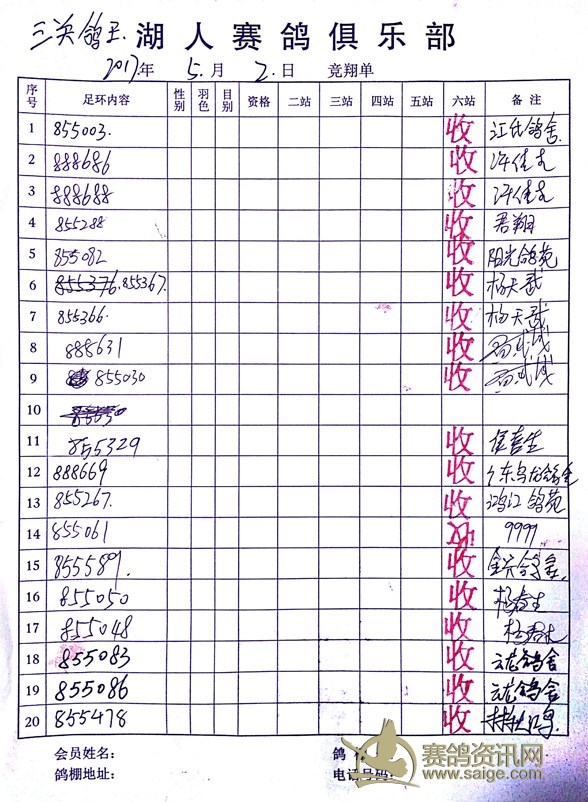 三关鸽王 湖人赛鸽俱乐部
2017年 5月 2日 竞翔单
序号 足环内容 性别 羽色 目别 资格 二站 三站 四站 五站 六站 备注
1 855003. 收 江氏鸽舍
2 888686 收 许佳友
3 888688 收 许佳友
4 855288 收 君翔
5 855082 收 阳光鸽苑
6 855376. 855367. 收 杨天武
7 855366. 收 杨天武
8 888631 收
9 855030 收
10
11 855329 收 喜生
12 888669 收 广东乌龙鸽舍
13 855267. 收 鸿江鸽苑
14 855061 9999
15 855589. 收
16 855050 收 杨春生
17 855048 收 杨春生
18 855083 收 云龙鸽舍
19 855086 收 云龙鸽舍
20 855478 收
会员姓名: 鸽
鸽棚地址: 电话号码:
赛鸽资讯网
www.saige.com